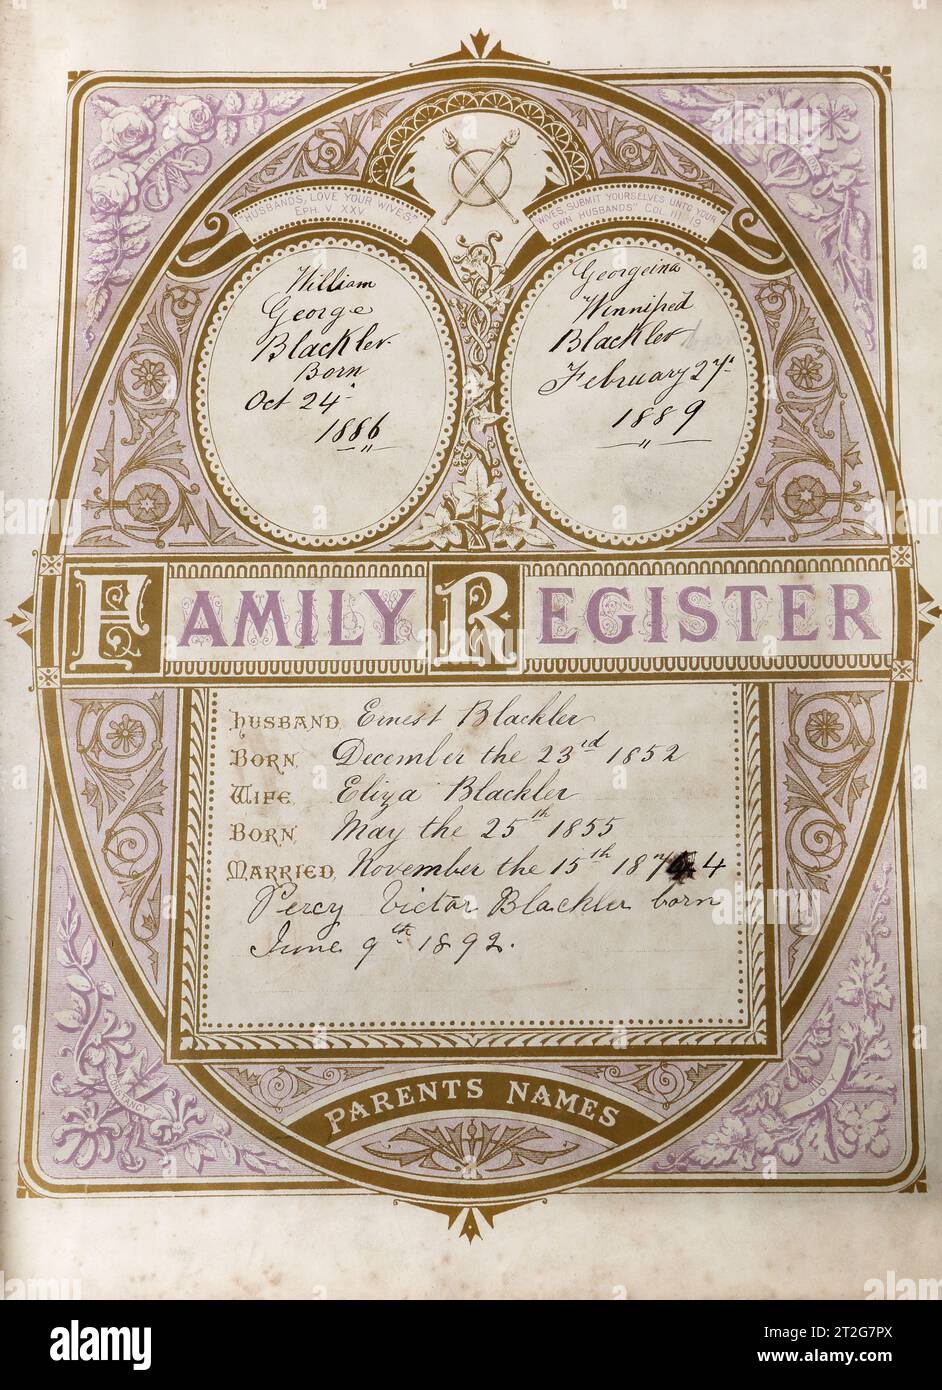 "HUSBANDS, LOVE YOUR WIVES"
EPH. V. XXV.
WIVES, SUBMIT YOURSELVES UNTO YOUR
OWN HUSBANDS" COL. III
William
George
Blackler
Born
Oct 24
1886
Georgeina
Winnifred
Blackler born
February 27
1889
FAMILY REGISTER
HUSBAND Ernest Blackler
BORN December the 23rd 1852
WIFE Eliza Blackler
BORN May the 25th 1855
MARRIED November the 15th 1874 4
Percy Victor Blackler born
June 9th 1892.
CONSTANCY
JOY
PARENTS NAMES
alamy
Image ID: 2T2G7PX
www.alamy.com